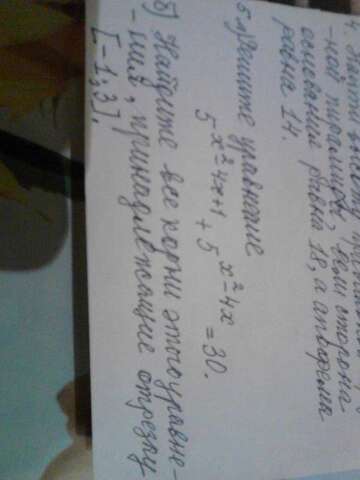 4. Найти
-ной пирамиды, если сторона
основания равна 18, а апофема
равна 14.
5.а) Решите уравнение
5^{x²-4x+1} + 5^{x²-4x} = 30.
б) Найдите все корни этого уравне-
-ния, принадлежащие отрезку
[-1; 3].